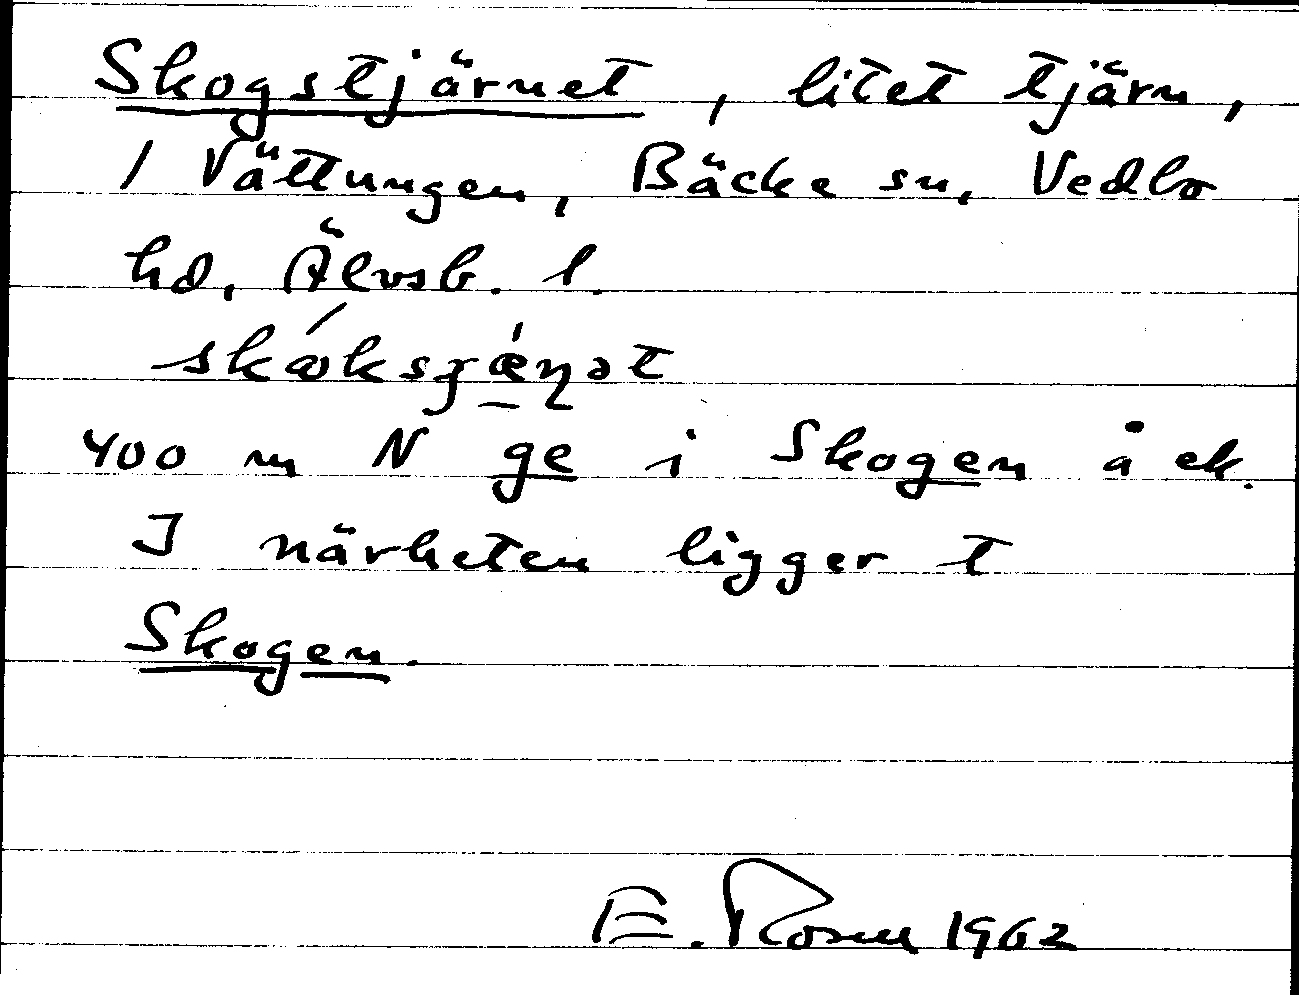 Skogstjärnet, litet tjärn,
1 Vättungen, Bäcke sn, Vedbo
hd, Älvsb. l.
400 m N ge i Skogen å ek.
I närheten ligger t
Skogen.
E. Rosell 1962